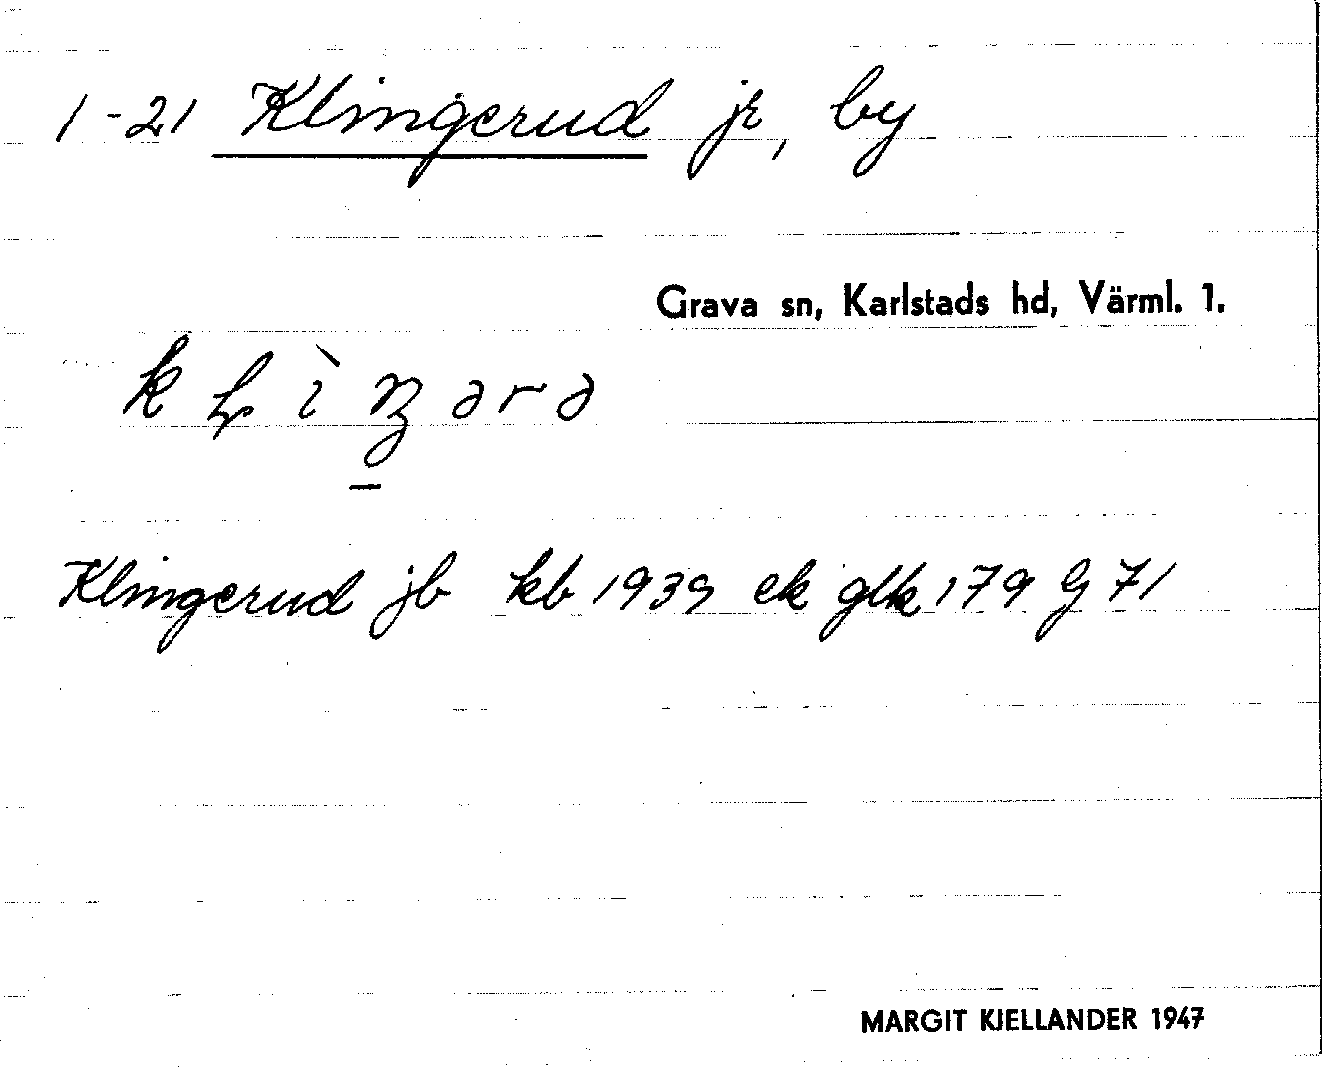 1-21 Klingerud jr, by
Grava sn, Karlstads hd, Värml. 1.
Klingerud jb kb 1939 ek glk 179 G 71
MARGIT KJELLANDER 1947